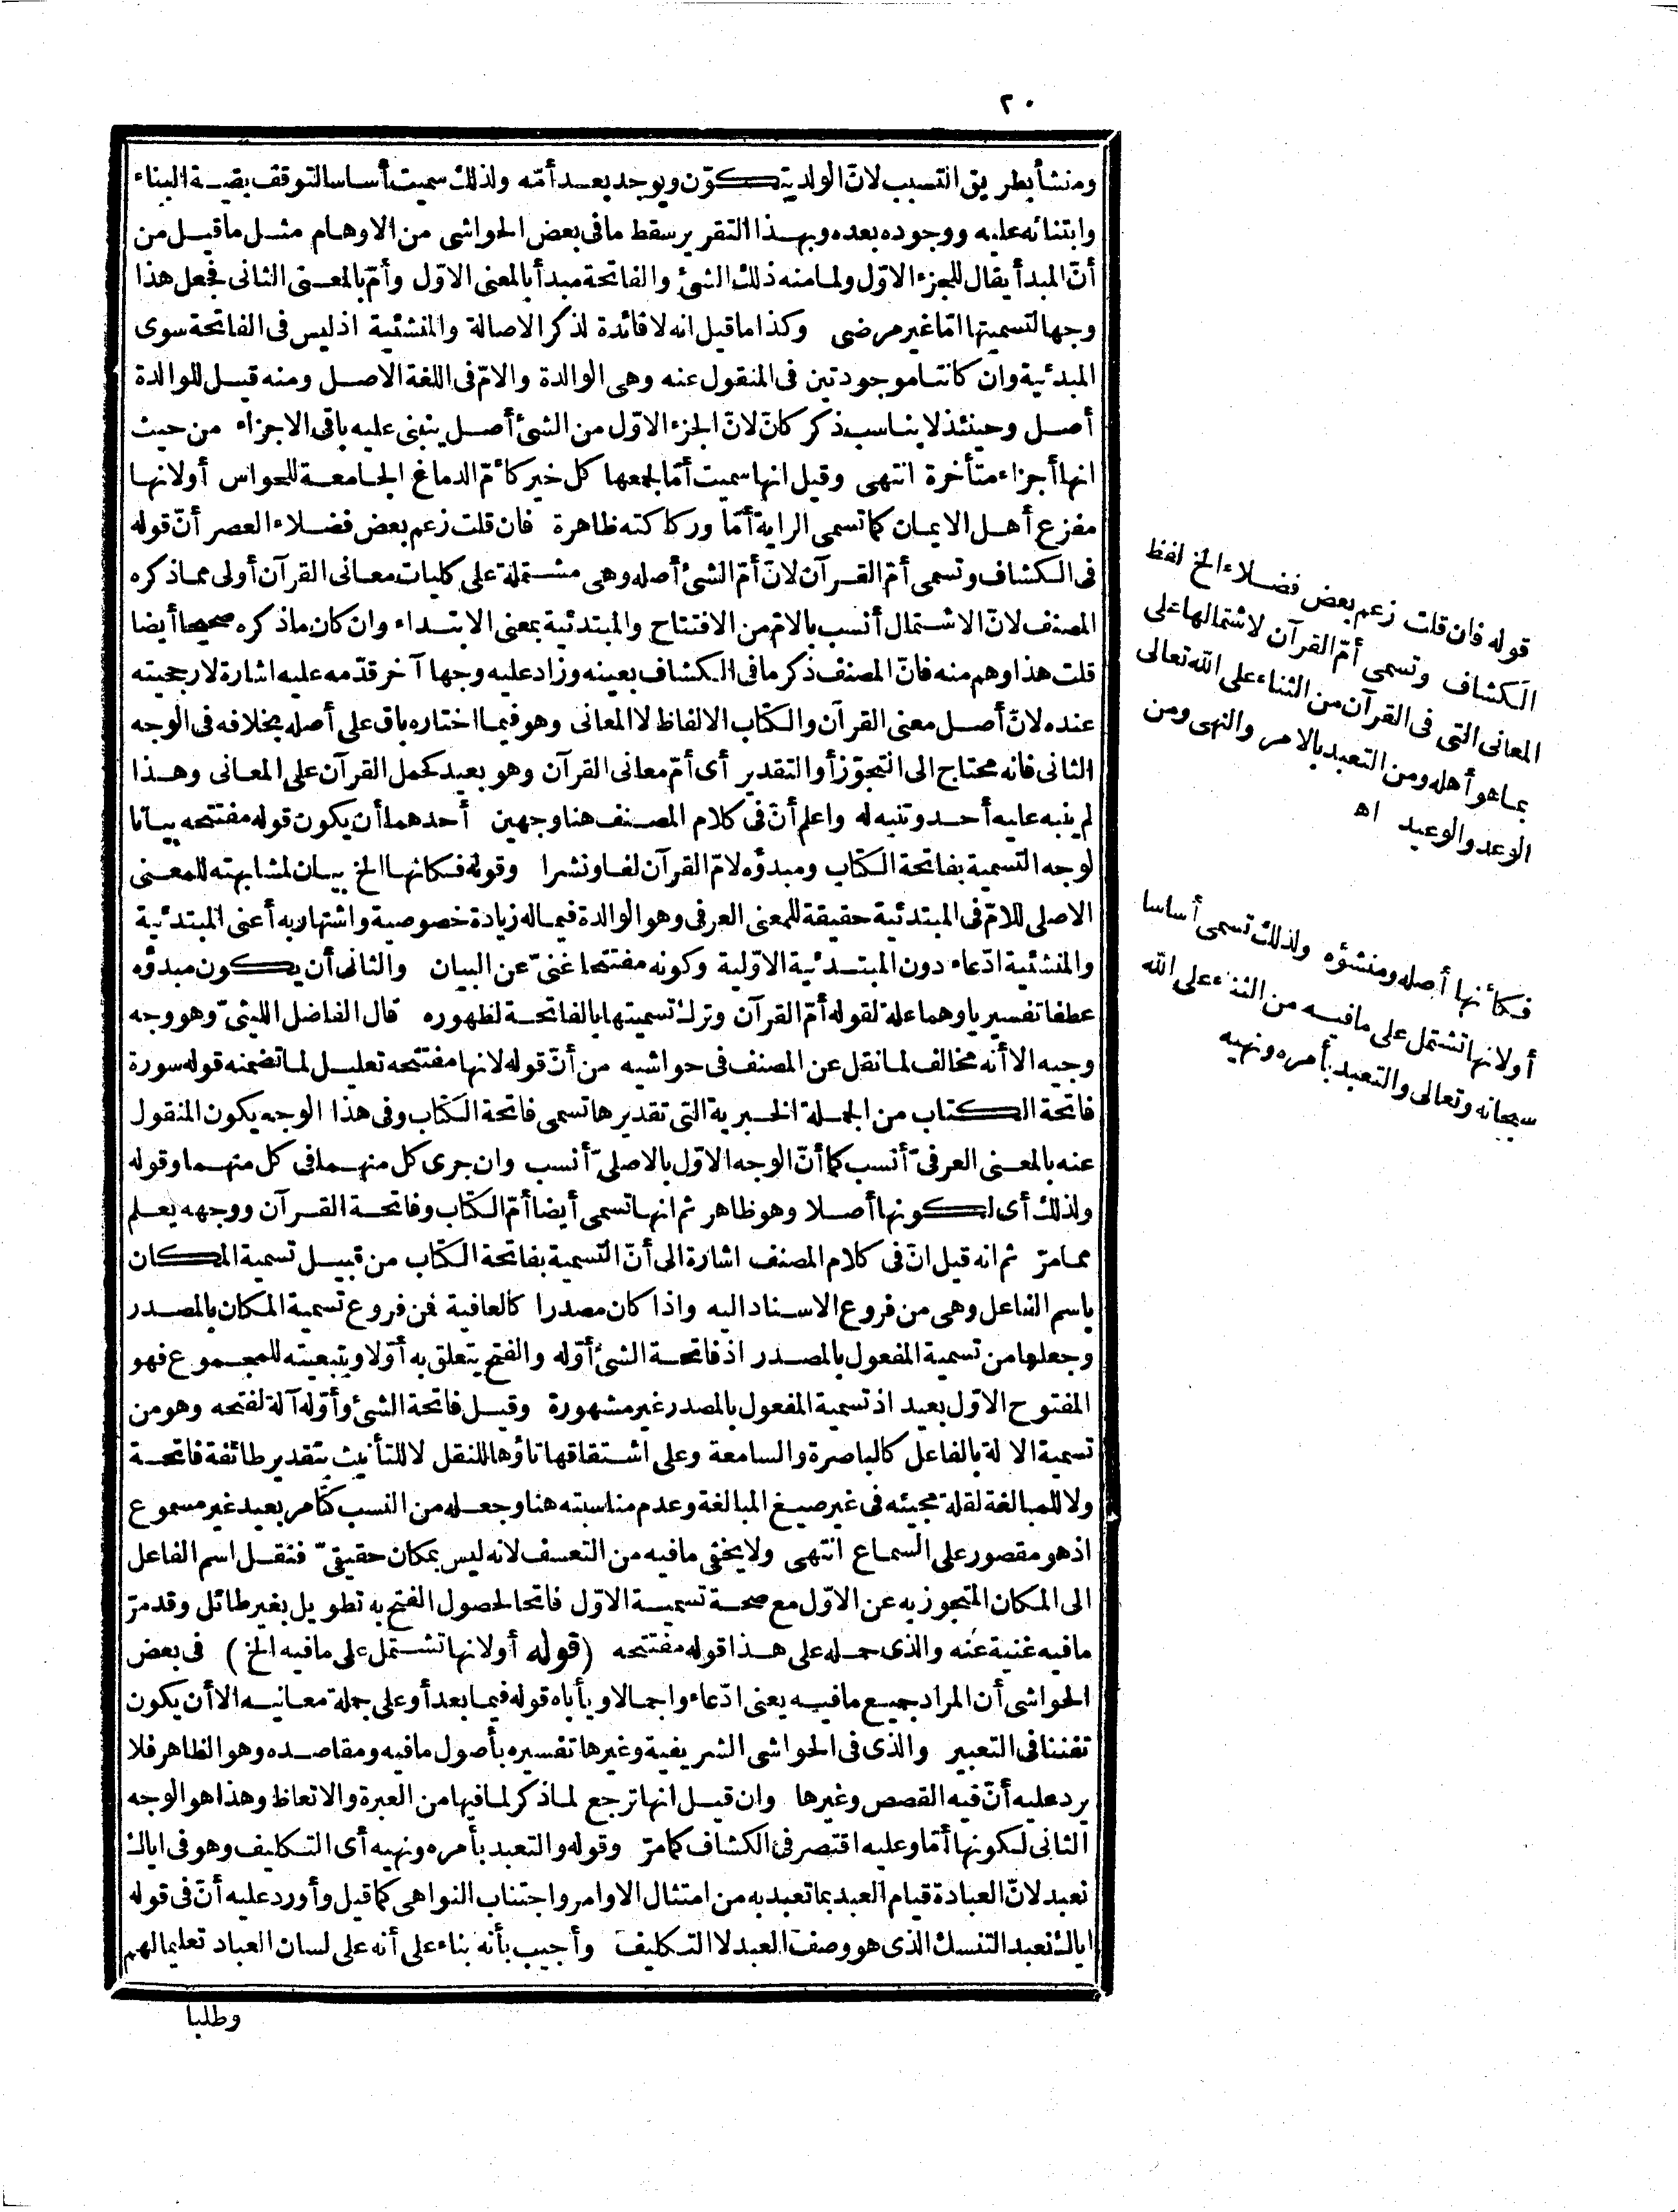 ٢٠
ومنشأ بطريق التسبب لانّ الولد يتكوّن ويوجد بعد أمّه ولذلك سميت أساسا لتوقف بقية البناء
وابتنائه عليه ووجوده بعده وبهذا التقرير سقط ما فى بعض الحواشى من الاوهام مثل ما قيل من
أنّ المبدأ يقال للجزء الاوّل ولما منه ذلك الشئ والفاتحة مبدأ بالمعنى الاوّل وأمّ بالمعنى الثانى فجعل هذا
وجها لتسميتها امّا غير مرضى وكذا ما قيل انه لا فائدة لذكر الاصالة والمنشئية اذ ليس فى الفاتحة سوى
المبدئية وان كانتا موجودتين فى المنقول عنه وهى الوالدة والامّ فى اللغة الاصل ومنه قيل للوالدة
أصل وحينئذ لا يناسب ذكر كانّ لانّ الجزء الاوّل من الشئ أصل ينبنى عليه باقى الاجزاء من حيث
انها أجزاء متأخرة انتهى وقيل انها سميت أمّا لجمعها كل خير كأمّ الدماغ الجامعة للحواس أولانها
مفزع أهل الايمان كما تسمى الراية أمّا وركاكته ظاهرة فان قلت زعم بعض فضلاء العصر أنّ قوله
فى الكشاف وتسمى أمّ القرآن لانّ أمّ الشئ أصله وهى مشتملة على كليات معانى القرآن أولى مما ذكره
المصنف لانّ الاشتمال أنسب بالامّ من الافتتاح والمبتدئية بمعنى الابتداء وان كان ما ذكره صحيحا أيضا
قلت هذا وهم منه فانّ المصنف ذكر ما فى الكشاف بعينه وزاد عليه وجها آخر قدّمه عليه اشارة لارجحيته
عنده لانّ أصل معنى القرآن والكتاب الالفاظ لا المعانى وهو فيما اختاره باق على أصله بخلافه فى الوجه
الثانى فانه محتاج الى التجوّز أو التقدير أى أمّ معانى القرآن وهو بعيد كحمل القرآن على المعانى وهذا
لم ينبه عليه أحد وتنبه له واعلم أنّ فى كلام المصنف هنا وجهين أحدهما أن يكون قوله مفتتحه بيانا
لوجه التسمية بفاتحة الكتاب ومبدؤه لامّ القرآن لفا ونشرا وقوله فكانها الخ بيان لمشابهته للمعنى
الاصلى للامّ فى المبتدئية حقيقة للمعنى العرفى وهو الوالدة فيما له زيادة خصوصية واشتهار به أعنى المبتدئية
والمنشئية ادّعاء دون المبتدئية الاوّلية وكونه مفتتحا غنىّ عن البيان والثانى أن يكون مبدؤه
عطفا تفسيريا وهما علة لقوله أمّ القرآن وترك تسميتها بالفاتحة لظهوره قال الفاضل الليثىّ وهو وجه
وجيه الا أنه مخالف لما نقل عن المصنف فى حواشيه من أنّ قوله لانها مفتتحه تعليل لما تضمنه قوله سورة
فاتحة الكتاب من الجملة الخبرية التى تقديرها تسمى فاتحة الكتاب وفى هذا الوجه يكون المنقول
عنه بالمعنى العرفىّ أنسب كما أنّ الوجه الاوّل بالاصلىّ أنسب وان جرى كل منهما فى كل منهما وقوله
ولذلك أى لكونها أصلا وهو ظاهر ثم انها تسمى أيضا أمّ الكتاب وفاتحة القرآن ووجهه يعلم
مما مرّ ثم انه قيل انّ فى كلام المصنف اشارة الى أنّ التسمية بفاتحة الكتاب من قبيل تسمية المكان
باسم الفاعل وهى من فروع الاسناد اليه واذا كان مصدرا كالعافية فمن فروع تسمية المكان بالمصدر
وجعلها من تسمية المفعول بالمصدر اذ فاتحة الشئ أوّله والفتح يتعلق به أوّلا وبتبعيته للمجموع فهو
المفتوح الاوّل بعيد اذ تسمية المفعول بالمصدر غير مشهورة وقيل فاتحة الشئ وأوّله آلة لفتحه وهو من
تسمية الآلة بالفاعل كالباصرة والسامعة وعلى اشتقاقها تاؤها للنقل لا للتأنيث بتقدير طائفة فاتحة
ولا للمبالغة لقلة مجيئه فى غير صيغ المبالغة وعدم مناسبته هنا وجعله من النسب كتامر بعيد غير مسموع
اذ هو مقصور على السماع انتهى ولا يخفى ما فيه من التعسف لانه ليس بمكان حقيقىّ فنقل اسم الفاعل
الى المكان المتجوز به عن الاوّل مع صحة تسمية الاوّل فاتحا لحصول الفتح به تطويل بغير طائل وقد مرّ
ما فيه غنية عنه والذى حمله على هذا قوله مفتتحه (قوله أولانها تشتمل على ما فيه الخ) فى بعض
الحواشى أن المراد جميع ما فيه يعنى ادّعاء واجمالا ويأباه قوله فيما بعد أو على جملة معانيه الا أن يكون
تفننا فى التعبير والذى فى الحواشى الشريفية وغيرها تفسيره بأصول ما فيه ومقاصده وهو الظاهر فلا
يرد عليه أنّ فيه القصص وغيرها وان قيل انها ترجع لما ذكر لما فيها من العبرة والاتعاظ وهذا هو الوجه
الثانى لكونها أمّا وعليه اقتصر فى الكشاف كما مرّ وقوله والتعبد بأمره ونهيه أى التكليف وهو فى اياك
نعبد لانّ العبادة قيام العبد بما تعبد به من امتثال الاوامر واجتناب النواهى كما قيل وأورد عليه أنّ فى قوله
اياك نعبد التنسك الذى هو وصف العبد لا التكليف وأجيب بأنه بناء على أنه على لسان العباد تعليما لهم
وطلبا
قوله فان قلت زعم بعض فضلاء الخ لفظ
الكشاف وتسمى أمّ القرآن لاشتمالها على
المعانى التى فى القرآن من الثناء على الله تعالى
بما هو أهله ومن التعبد بالامر والنهى ومن
الوعد والوعيد اه
فكأنها أصله ومنشؤه ولذلك تسمى أساسا
أولانها تشتمل على ما فيه من الثناء على الله
سبحانه وتعالى والتعبد بأمره ونهيه